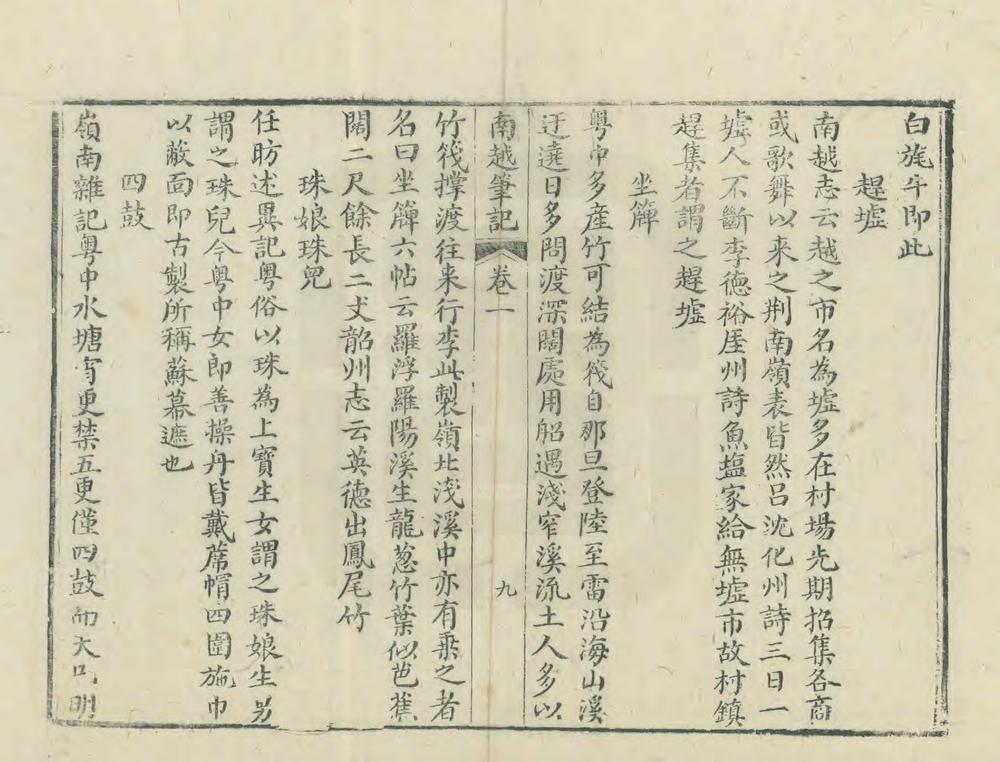 白旄牛即此
趕墟
南越志云越之市名為墟多在村場先期招集各商
或歌舞以来之荆南嶺表皆然吕沈化州詩三日一
墟人不斷李德裕厓州詩魚塩家給無墟市故村鎮
趕集者謂之趕墟
坐簰
粤中多産竹可結為筏自那旦登陸至雷沿海山溪
迂遶日多問渡深闊處用船遇淺窄溪流土人多以
南越筆記 卷二 九
竹筏撑渡往来行李此製嶺北淺溪中亦有乗之者
名曰坐簰六帖云羅浮羅陽溪生龍葱竹葉似芭蕉
闊二尺餘長二丈韶州志云英德出鳳尾竹
珠娘珠兒
任昉述異記粤俗以珠為上寶生女謂之珠娘生男
謂之珠兒今粤中女郎善操舟皆戴蓆帽四圍施巾
以蔽面即古製所稱蘇幕遮也
四鼓
嶺南雜記粤中水塘宵更禁五更僅四鼓而天已明